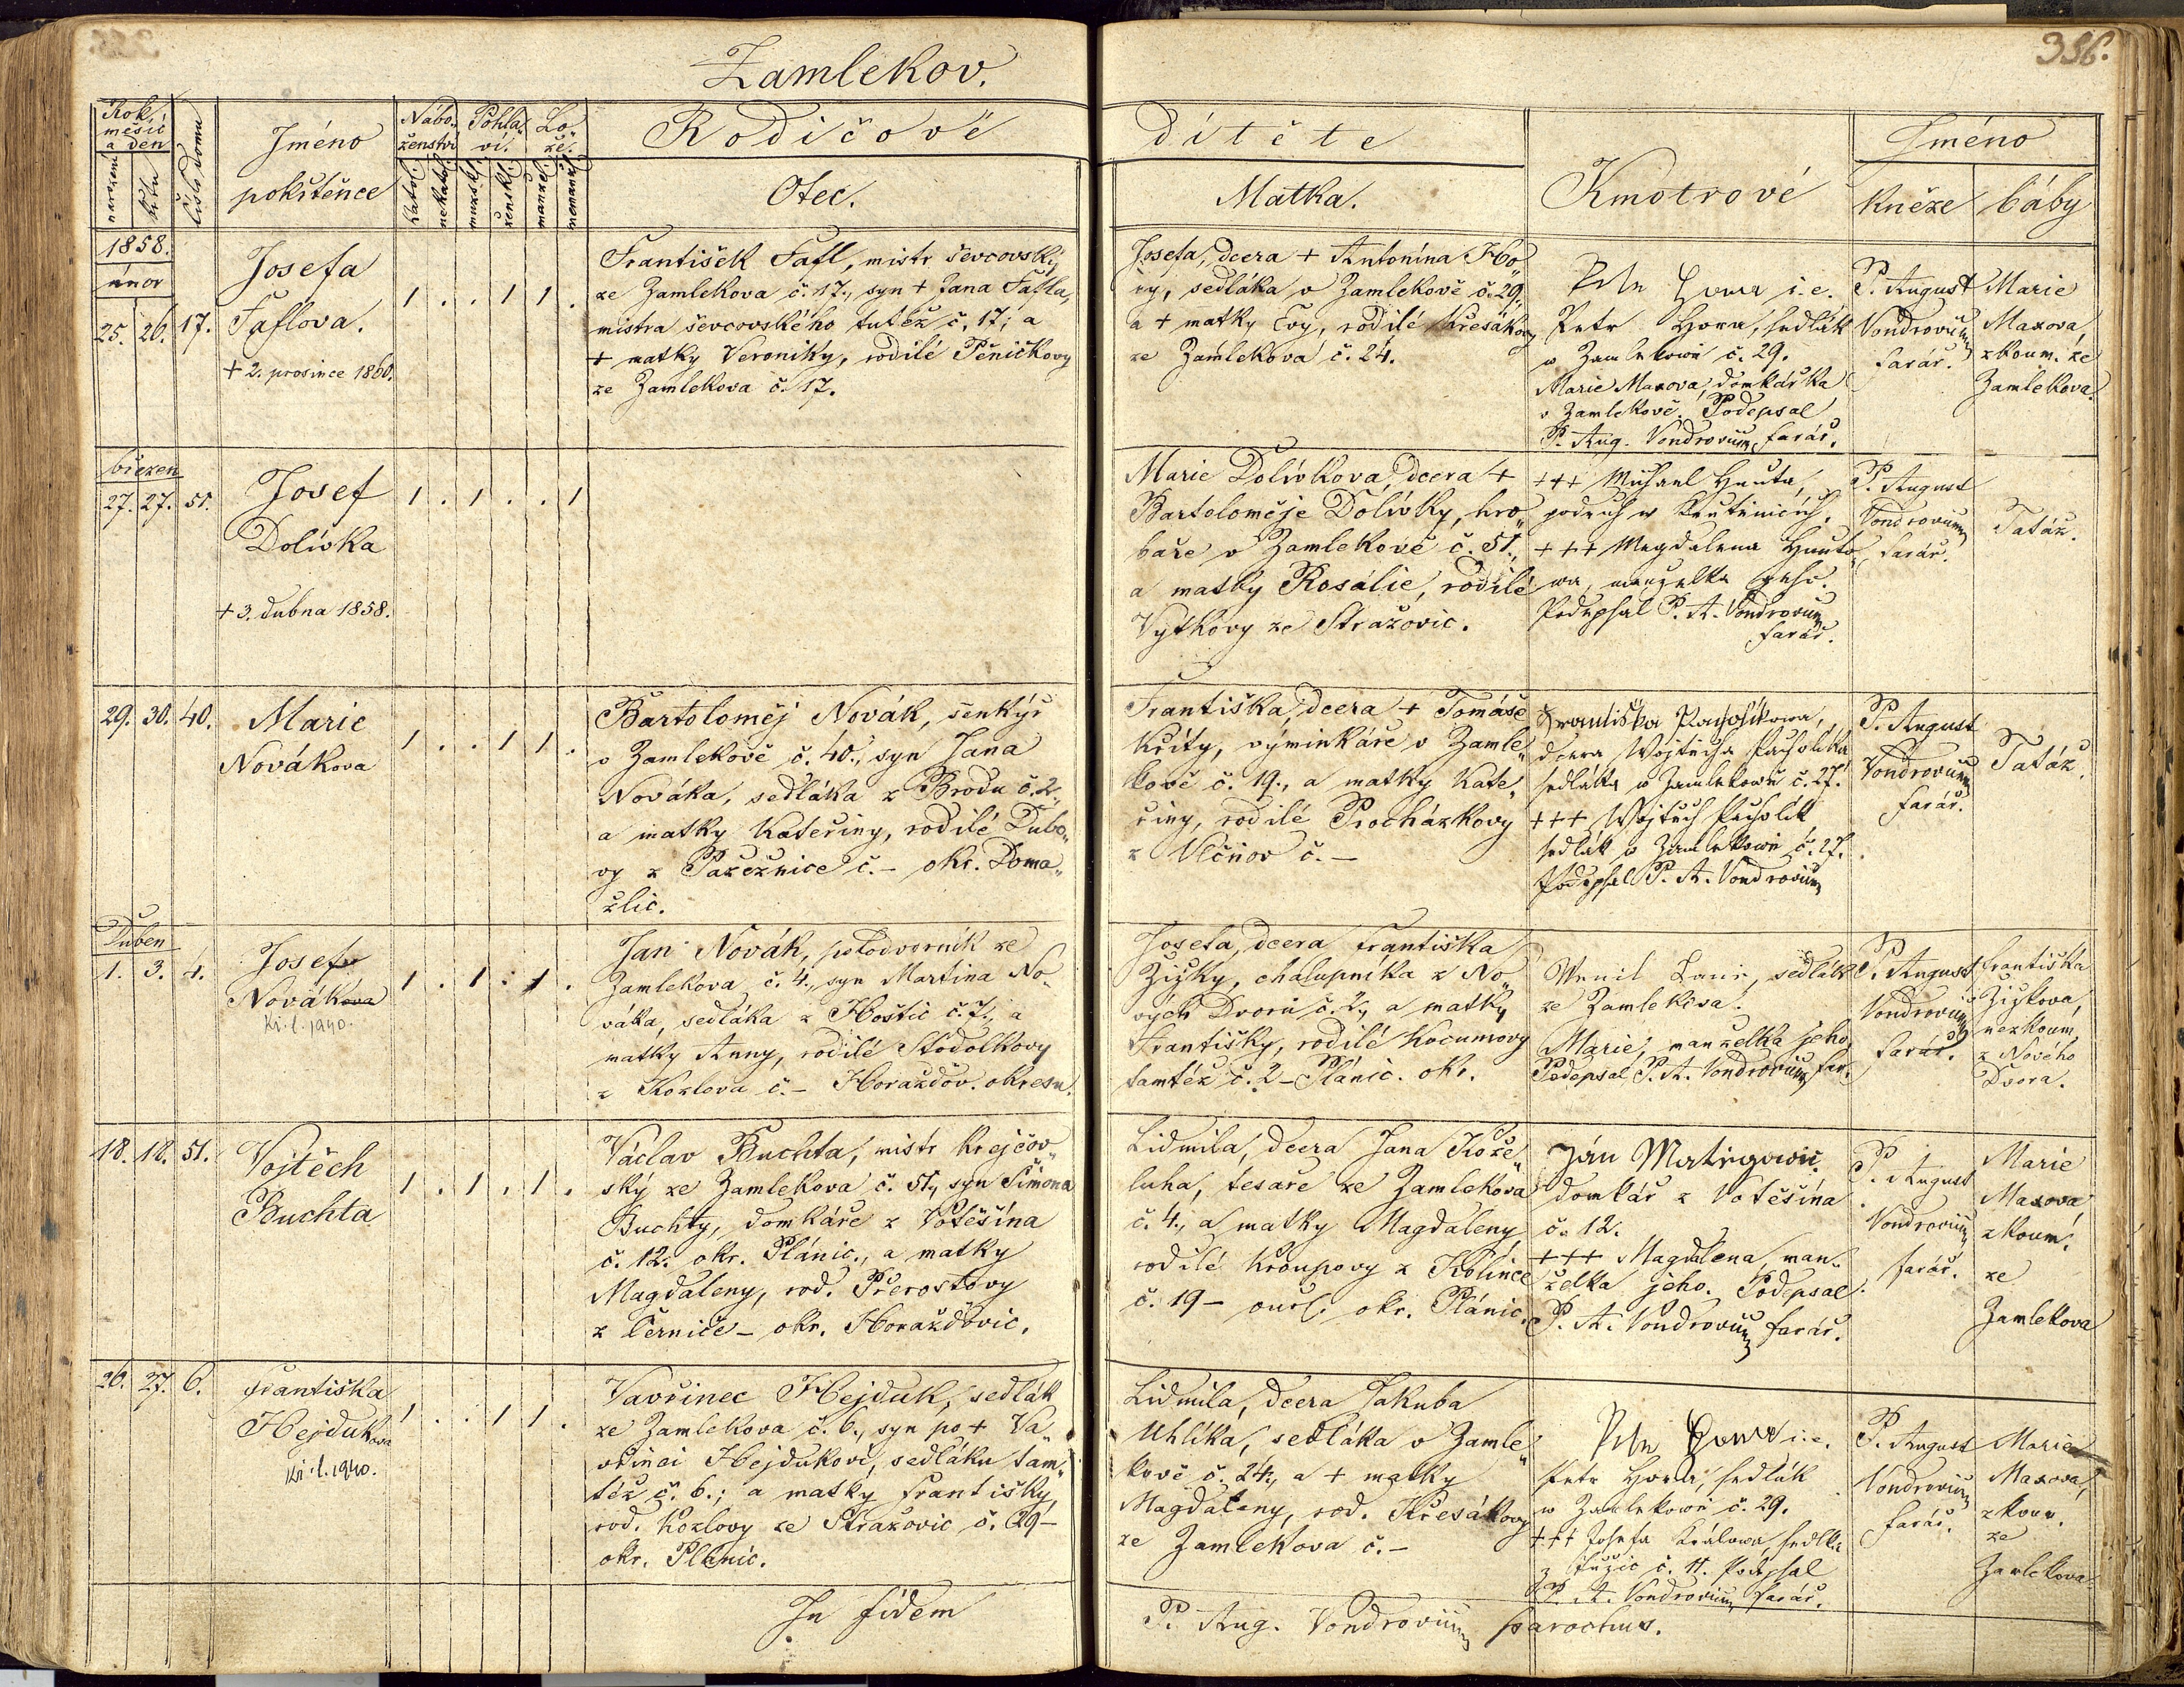 356.
Zamlekov.
Rok, měsíc a den
narození
křtu
číslo domu
Jméno pokřtěnce
Nábo„ ženství
katol.
nekatol.
Pohla„ ví.
mužské
ženské
Lo„ že.
manžel.
nemanž.
Rodičové dítěte
Otec.
Matka.
Kmotrové
Jméno
kněze
báby
1858.
únor
25. 26. 17.
Josefa
Faflova.
+ 2. prosince 1860.
1 . . 1 1 .
František Fafl, mistr ševcovský
ze Zamlekova č. 17., syn + Jana Fafla,
mistra ševcovského tutéž č. 17; a
+ matky Veroniky, rodilé Pěničkovy
ze Zamlekova č. 17.
Josefa, dcera + Antonína Ho„
ry, sedláka v Zamlekově č. 29.,
a + matky Evy, rodilé Křesákovy
ze Zamlekova č. 24.
Petr Hora i.e.
Petr Hora, sedlák
w Zamlekowě č. 29.
Marie Maxova, domkářka
v Zamlekově. Podepsal
P. Aug. Vondrovium, farář.
P. August
Vondrovium
farář.
Marie
Maxova,
zkoum. ze
Zamlekova.
březen
27. 27. 51.
Josef
Dolívka
+ 3. dubna 1858.
1 . 1 . . 1
Marie Dolívkova, dcera +
Bartoloměje Dolívky, hro„
baře v Zamlekově č. 51.,
a matky Rosalie, rodilé
Vytkovy ze Stražovic.
+++ Michael Huuta,
podruh w
+++ Magdalena Huuto„
wa, manželka geho.
Podepsal P. A. Vondrovium
farář.
P. August
Vondrovium
farář.
Tatáž.
29. 30. 40.
Marie
Nováková
1 . . 1 1 .
Bartoloměj Novák, šenkýř
v Zamlekově č. 40., syn Jana
Nováka, sedláka z Brodu č. 2.,
a matky Kateřiny, rodilé Dubo„
vy z Pasečnice č. – okr. Doma„
žlic.
Františka, dcera + Tomáše
Křity, výminkáře v Zamle„
kově č. 19., a matky Kate„
řiny, rodilé Procházkovy
z Vlčňov č. –
Františka Pacholíkowa,
dcera Wojtěcha Pacholíka
sedláka w Zamlekowě č. 27.
+++ Wojtěch Pacholík
sedlák w Zamlekowě č. 27.
Podepsal P. A. Vondrovium
P. August
Vondrovium
farář.
Tatáž.
Duben
1. 3. 4.
Josef
Novák
Kř. l. 1940.
1 . 1 . 1 .
Jan Novák, polodvorník ze
Zamlekova č. 4., syn Martina No„
váka, sedláka z Hoštic č. 7., a
matky Anny, rodilé Stodolkovy
z Kozlova č. – Horažďov. okresu.
Josefa, dcera Františka
Žižky, chalupníka z No„
vých Dvorů č. 2., a matky
Františky, rodilé Kocumovy
tamtéž č. 2 – Plánic. okr.
sedlák
ze Zamlekova.
Marie, manželka jeho,
Podepsal P. A. Vondrovium, far.
P. August
Vondrovium
farář.
Františka
Žižkova,
nezkoum.
z Nového
Dvora.
18. 18. 51.
Vojtěch
Buchta
1 . 1 . 1 .
Václav Buchta, mistr krejčov„
ský ze Zamlekova č. 51., syn Šimona
Buchty, domkáře z Votěšína
č. 12. okr. Plánic., a matky
Magdaleny, rod. Přerostovy
z Černíče – okr. Horažďovic.
Lidmila, dcera Jana Kože„
luha, tesaře ze Zamlekova
č. 4., a matky Magdaleny,
rodilé Kroupovy z Kolince
č. 19 – okr. Plánic.
Ján
domkář z Votěšína
č. 12.
+++ Magdalena, man„
želka jeho. Podepsal
P. A. Vondrovium, farář.
P. August
Vondrovium
farář.
Marie
Maxova
zkoum.
ze
Zamlekova
26. 27. 6.
Františka
Hejduková
Kř. l. 1940.
1 . . 1 1 .
Vavřinec Hejduk, sedlák
ze Zamlekova č. 6., syn po + Va„
vřinci Hejdukovi, sedláku tam„
též č. 6.; a matky Františky,
rod. Kozlovy ze Stražovic č. 29 –
okr. Plánic.
Lidmila, dcera Jakuba
Uhlíka, sedláka v Zamle„
kově č. 24., a + matky
Magdaleny, rod. Křesákovy
ze Zamlekova č. –
Petr Hora i.e.
Petr Hora, sedlák
w Zamlekowě č. 29.
+++ Josefa Králowa, sedlka
č. 11. Podepsal
P. A. Vondrovium farář.
P. August
Vondrovium
farář.
Marie
Maxova,
zkoum.
ze
Zamlekova.
In fidem
P. Aug. Vondrovium parochus.